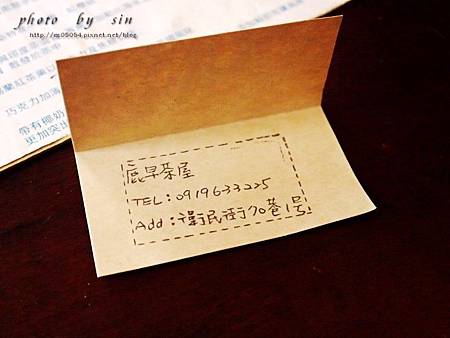 photo by sin
http://m05054.pixnet.net/blog
散發於茶中
巧克力加濃
帶有椰奶
更加突出
鹿早茶屋
TEL：0919633225
Add：衛民街70巷1号